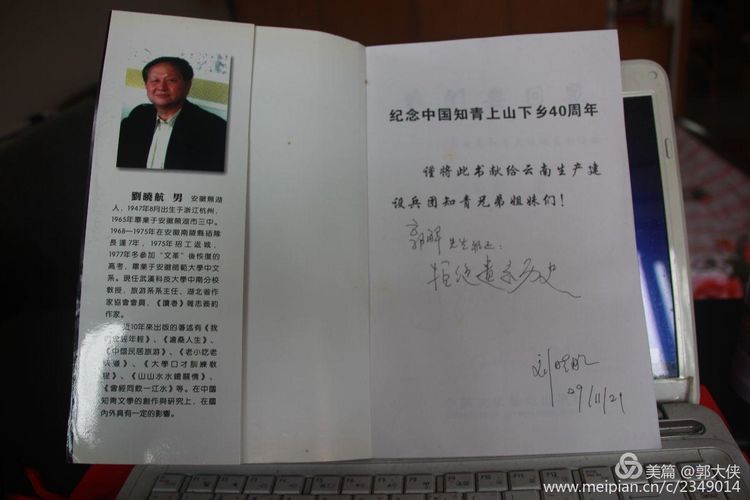 劉曉航 男 安徽蕪湖
人,1947年8月出生于浙江杭州,
1965年畢業于安徽蕪湖市三中。
1968—1975年在安徽南陵縣插隊
長達7年,1975年招工返城,
1977年冬參加“文革”後恢復的
高考,畢業于安徽師範大學中文
系。現任武漢科技大學中南分校
教授,旅游系系主任,湖北省作
家協會會員,《讀者》雜志簽約
作家。
近10年來出版的著述有《我
們曾經年輕》、《滄桑人生》、
《中國民居旅游》、《老小吃老
味道》、《大學口才訓練教
程》、《山山水水總關情》、
《曾經同飲一江水》等。在中國
知青文學的創作與研究上,在國
內外具有一定的影響。
纪念中国知青上山下乡40周年
谨将此书献给云南生产建
设兵团知青兄弟姐妹们!
郭晖 先生雅正:
拒绝遗忘历史
刘晓航
29/11/21
美篇 @郭大侠
www.meipian.cn/c/2349014